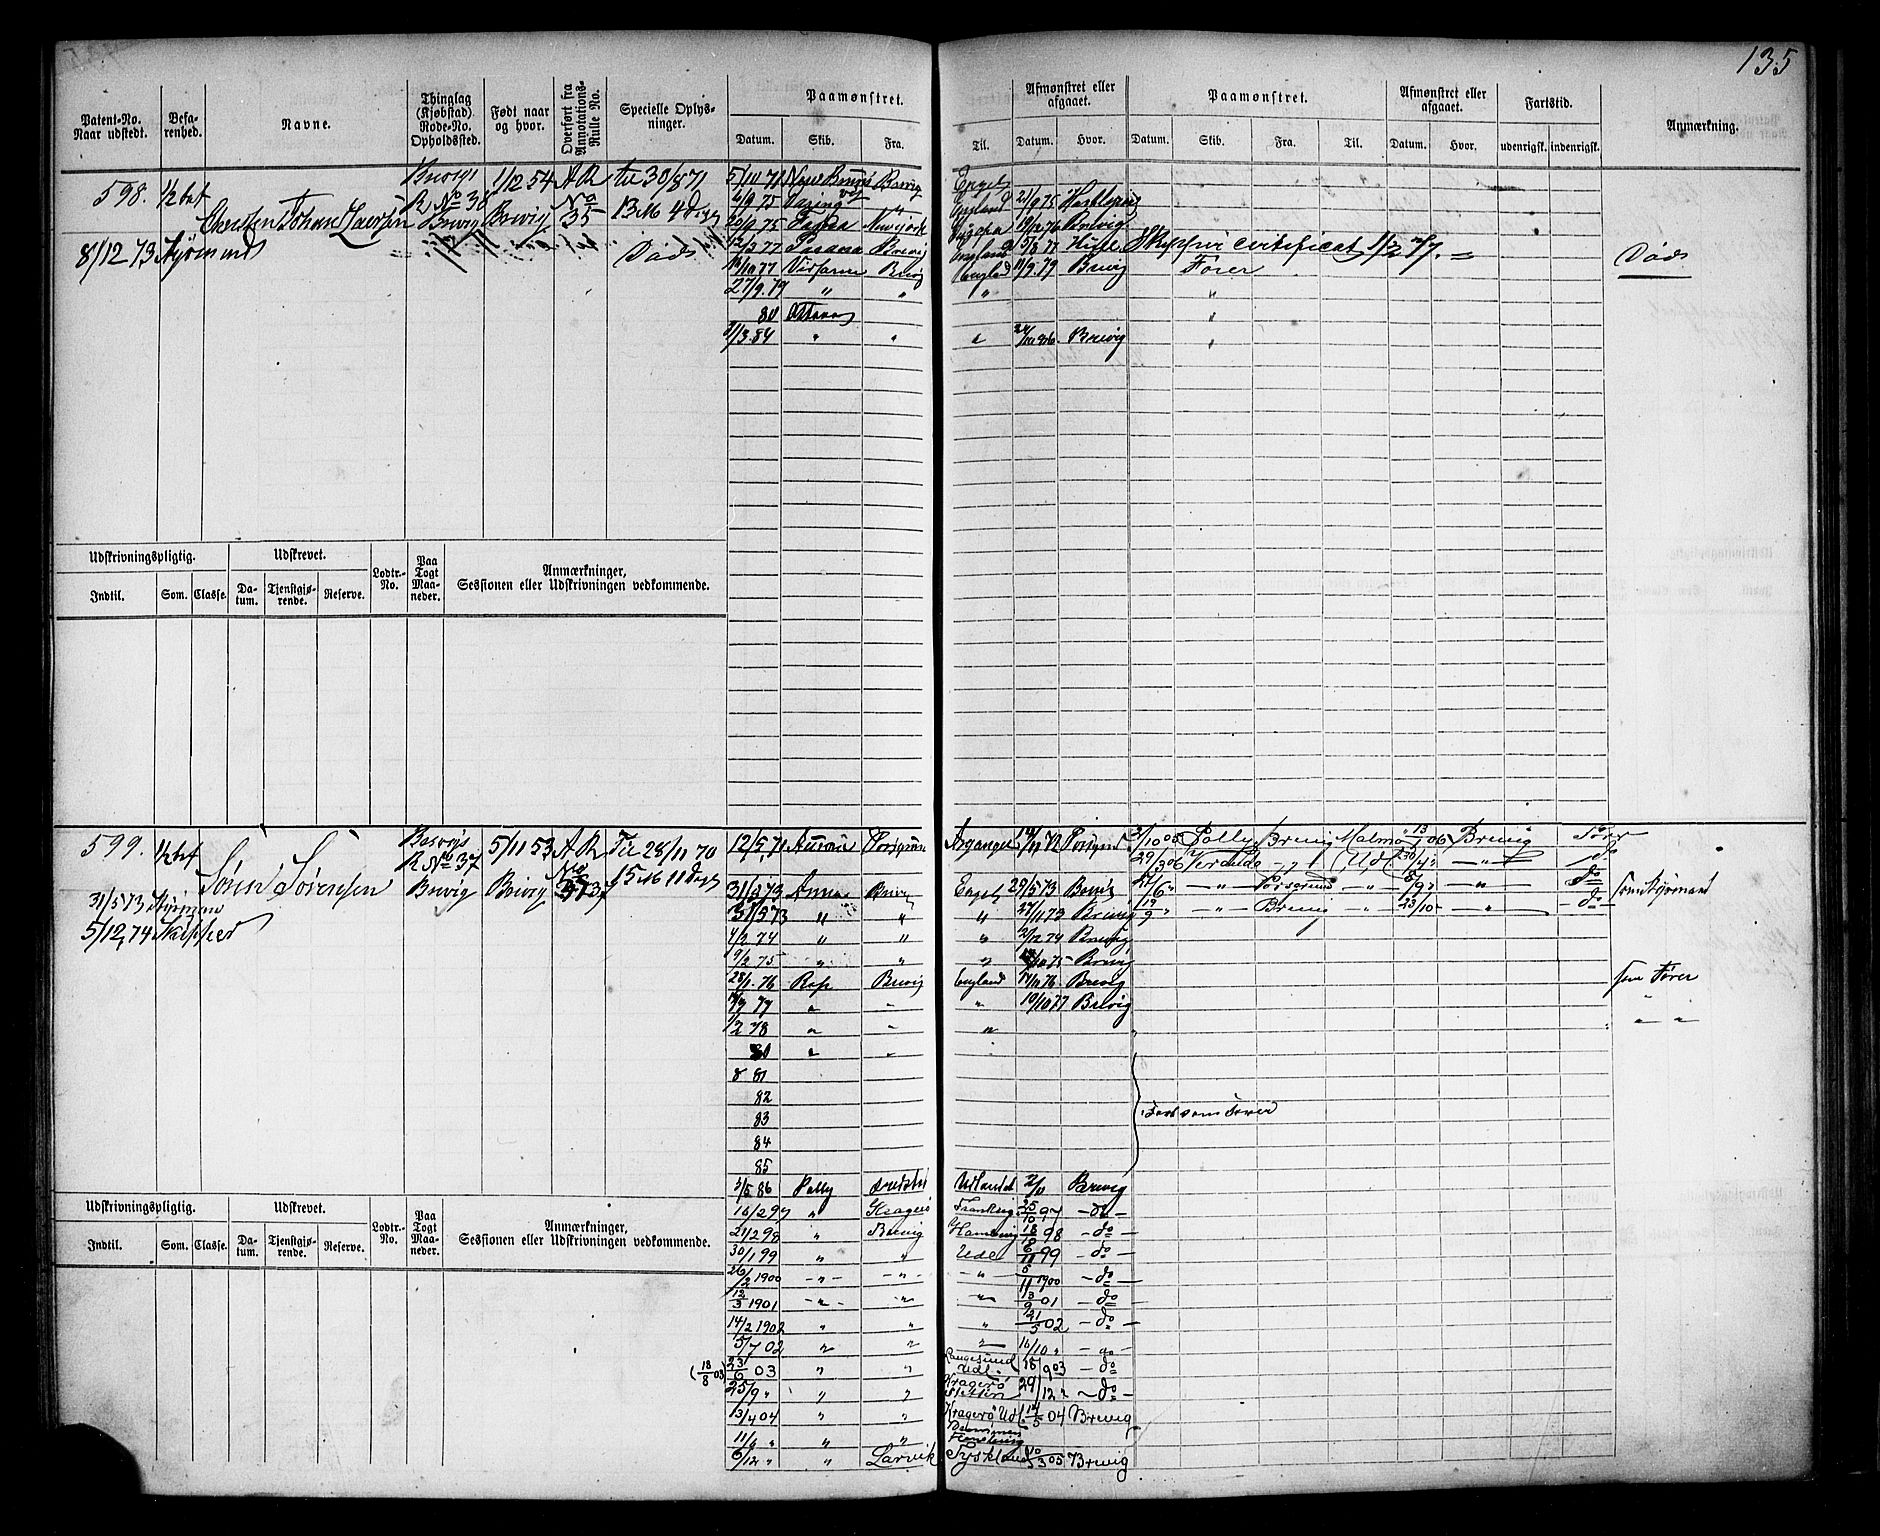 135
Patent-No. Naar udstedt.
Befarenhed.
Navne.
Thinglag (Kjøbstad) Rode-No. Opholdssted.
Født naar og hvor.
Overført fra Annotations-Rulle No.
Specielle Oplysninger.
Paamønstret.
Datum. Skib. Fra. Til.
Afmønstret eller afgaaet.
Datum. Hvor.
Paamønstret.
Datum. Skib. Fra. Til.
Afmønstret eller afgaaet.
Datum. Hvor.
Fartstid.
udenrigsk. indenrigsk.
Anmærkning.
598. 1/2 bef
8/12 73 Styrmand
Johan
R No 38
Brevig
1/12 54
Brevig
A R
No 35
til 30/8 71
13 M 4 Dage
Død
5/10 71 Brevig
6/9 75 England 21/9 75
Newyork Brevig
12/3 77 Brevig England 5/5 77
Skipper certificat 1/12 77.
10/10 77 Brevig England 11/9 79 Brevig Fører
27/9 79 " " " "
80
1/3 84 " " " Brevig "
Død
Udskrivningspligtig.
Indtil. Som. Classe.
Udskrevet.
Datum. Tjenstgjørende. Reserve.
Lodtr.-No.
Paa Togt Maaneder.
Anmærkninger, Sessionen eller Udskrivningen vedkommende.
599. 1/2 bef
Søren Sørensen
31/5 73 Styrmand
5/12 74 Skipper
R No 37
Brevig
5/11 53
Brevig
A R
No
Til 28/11 70
15 M 11 Dage
12/5 71 72
31/3 73 Anna Brevig Engl 29/5 73 Brevig
31/5 73 " " " 27/11 73 Brevig
4/2 74 " " " 2/12 74 Brevig
9/2 75 " " " 75 Brevig
28/1 76 Brevig England 76 Brevig
77 " " " 19/10 77 Brevig
1/2 78 " " "
80 " "
81
82
83
84
85
Fart som Fører
3/5 86 Polly Udlandet 2/11 Brevig
16/2 97 " Kragerø 25/10 97 - do -
21/2 98 " Brevig 18/10 98 - do -
30/1 99 " " Udl 6/11 99 - do -
26/2 1900 - " - - " - - " - 5/11 1900 - do -
12/3 1901 - " - " " 13/9 01 - do -
14/2 1902 " " " 21/5 02 - do -
5/7 02 " " " 10/10 " - do -
(18/8 03) 23/6 03 " " Langesund Udl. 18/9 03 - do
25/9 " " " Kragerø Stettin 29/12 " - do -
13/4 04 " " Kragerø Udl 14/5 04 Brevig
11/6 " " " Drammen Flensburg
6/12 " " Larvik Tyskland 10/3 05 Brevig
3/10 05 Polly Brevig Malmø 13/1 06 Brevig Fører
29/3 06 Veranda - " - Udl 30/4 " - " - do
21/6 " - " - Porsgrund - " - 8/9 " - " - do
19/9 " - " - Brevig - " - 23/10 - " - - do -
som Styrmand
som Fører
" "
Udskrivningspligtig.
Indtil. Som. Classe.
Udskrevet.
Datum. Tjenstgjørende. Reserve.
Lodtr.-No.
Paa Togt Maaneder.
Anmærkninger, Sessionen eller Udskrivningen vedkommende.